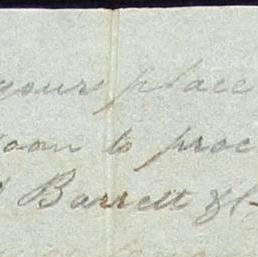 your place
soon to proc
Barrett &